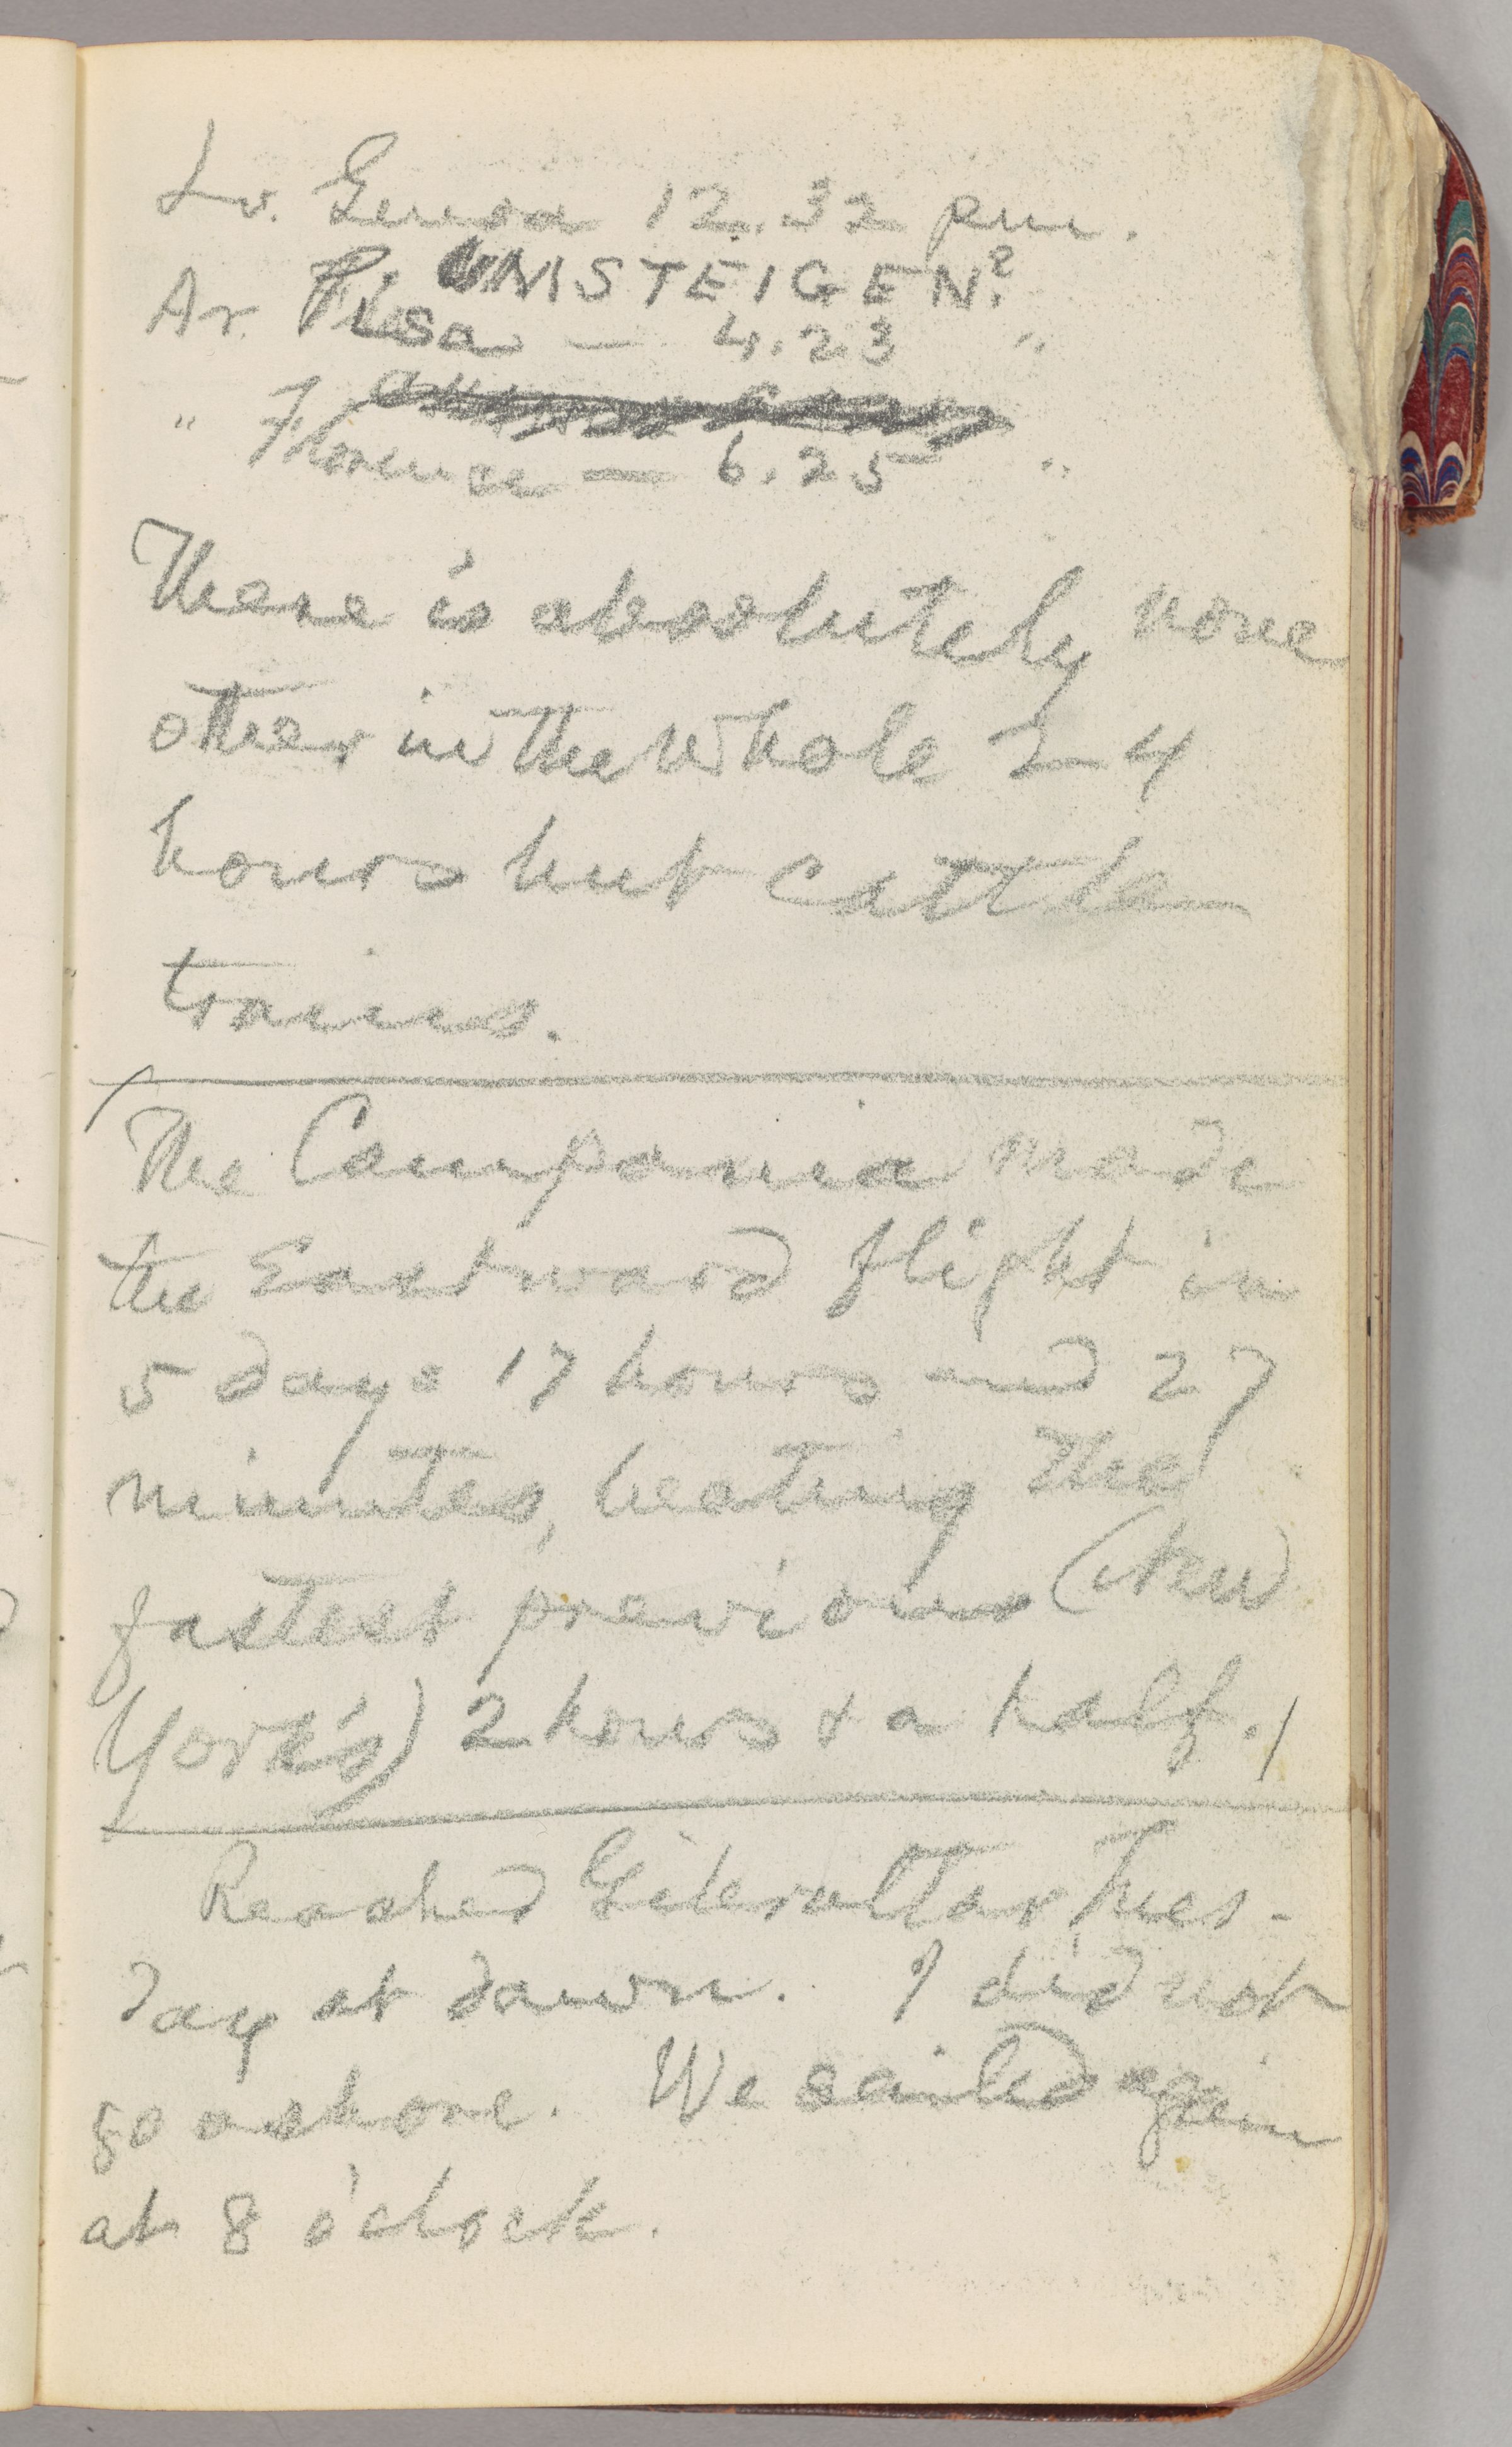 Lv. Genoa 12.32 pm.
UMSTEIGEN?
Ar. Pisa — 4.23 "
" Florence — 6.25 "
There is absolutely none
other in the whole 24
hours but cattle
trains.
The Campania made
the Eastward flight in
5 days 17 hours and 27
minutes, beating the
fastest previous (New
York's) 2 hours & a half./
Reached Gibraltar Tues-
day at dawn. I did not
go ashore. We sailed again
at 8 o'clock.